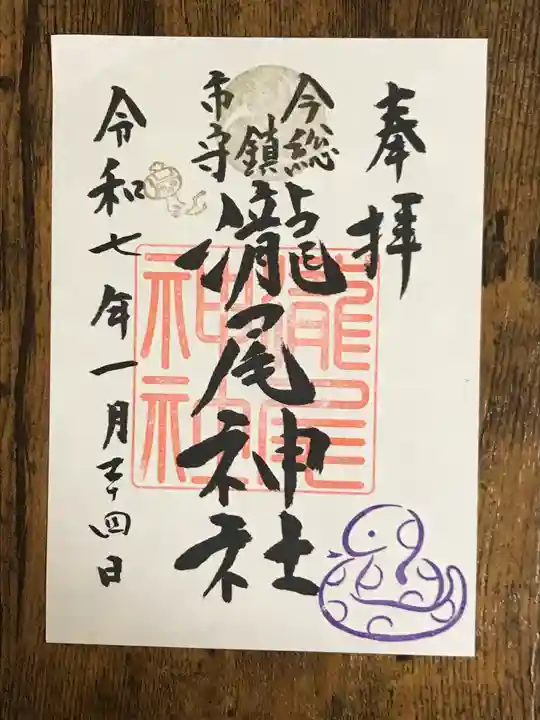 奉拝
今市
総鎮守
瀧尾神社
令和七年一月二十四日
瀧尾
神社